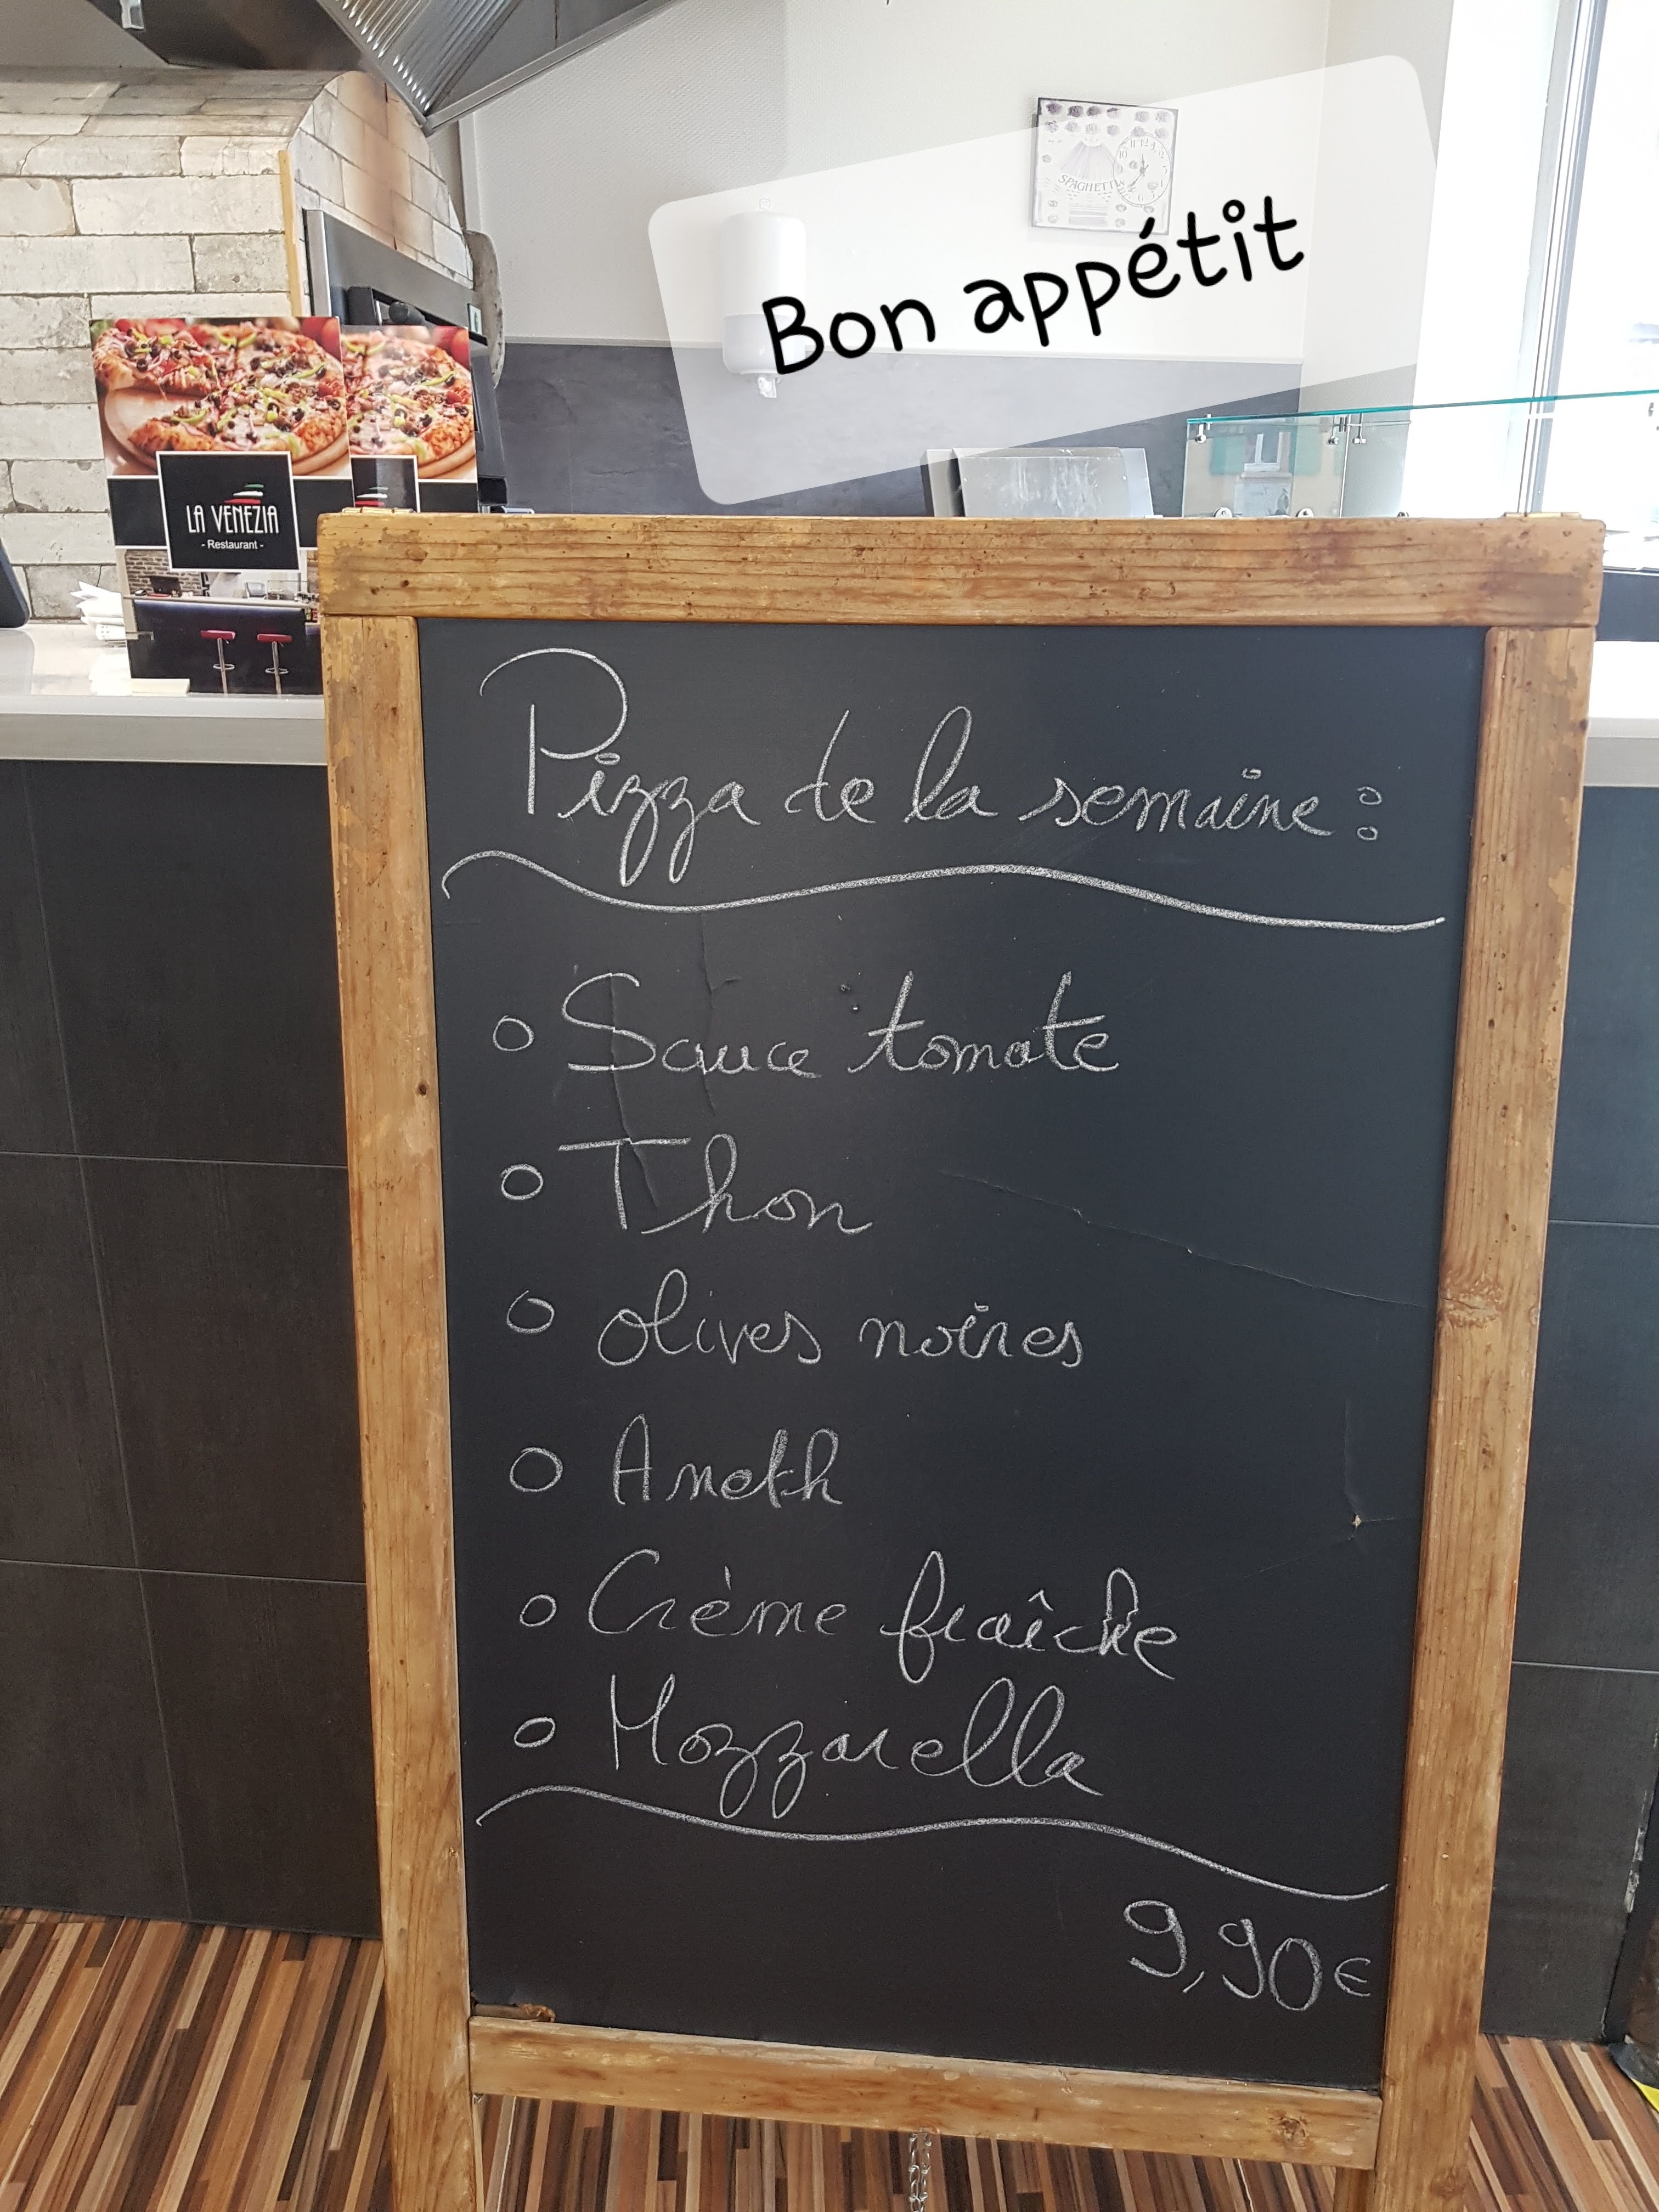 Bon appétit
SPAGHETTI
LA VENEZIA
- Restaurant -
Pizza de la semaine :
o Sauce tomate
o Thon
o olives noires
o Aneth
o Crème fraîche
o Mozzarella
9,90€